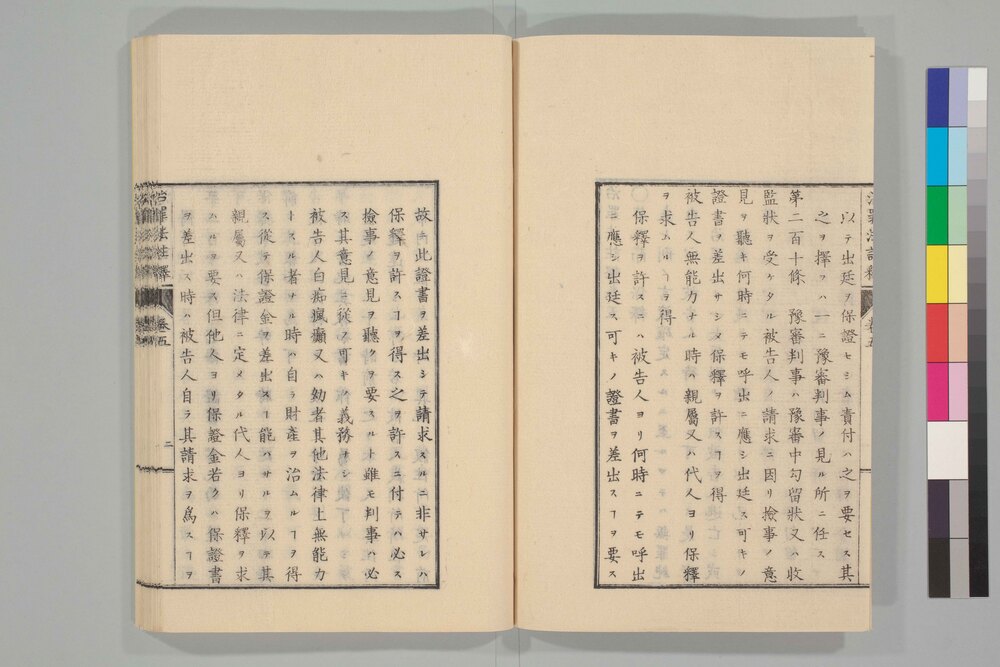 以テ出廷ヲ保證セシム責付ハ之ヲ要セス其
之ヲ擇フハ一ニ豫審判事ノ見ル所ニ任ス
第二百十條 豫審判事ハ豫審中勾留狀又ハ收
監狀ヲ受ケタル被告人ノ請求ニ因リ撿事ノ意
見ヲ聽キ何時ニテモ呼出ニ應シ出廷ス可キノ
證書ヲ差出サシメ保釋ヲ許スヿヲ得
被告人無能力ナル時ハ親屬又ハ代人ヨリ保釋
ヲ求ムルヿヲ得
保釋ヲ許スニハ被告人ヨリ何時ニテモ呼出
ニ應シ出廷ス可キノ證書ヲ差出スヿヲ要ス
故ニ此證書ヲ差出シテ請求スルニ非サレハ
保釋ヲ許スヿヲ得ス之ヲ許スニ付テハ必ス
撿事ノ意見ヲ聽クヲ要スルト雖モ判事ハ必
ス其意見ニ從フ可キノ義務ナシ
被告人白痴瘋癲又ハ幼者其他法律上無能力
トスル者ナル時ハ自ラ財產ヲ治ムルヿヲ得
ス從テ保證金ヲ差出スヿ能ハサルヲ以テ其
親屬又ハ法律ニ定メタル代人ヨリ保釋ヲ求
ハルヲ要ス但他人ヨリ保證金若クハ保證書
ヲ差出ス時ハ被告人自ラ其請求ヲ爲スヿヲ
治罪法註釋
卷五
二